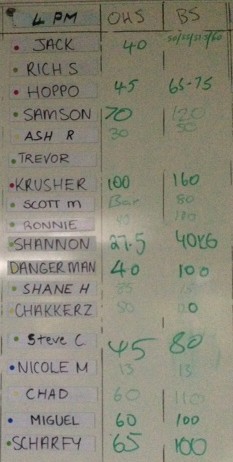 4 PM OHS BS
JACK 40
RICH S
HOPPO 45 65-75
SAMSON 70 120
ASH R 30 50
TREVOR
KRUSHER 100 160
SCOTT M Bar 80
RONNIE
SHANNON 27.5 40KG
DANGERMAN 40 100
SHANE H
CHAKKERZ
Steve C 45 80
NICOLE M 15 15
CHAD 60 110
MIGUEL 60 100
SCHARFY 65 100